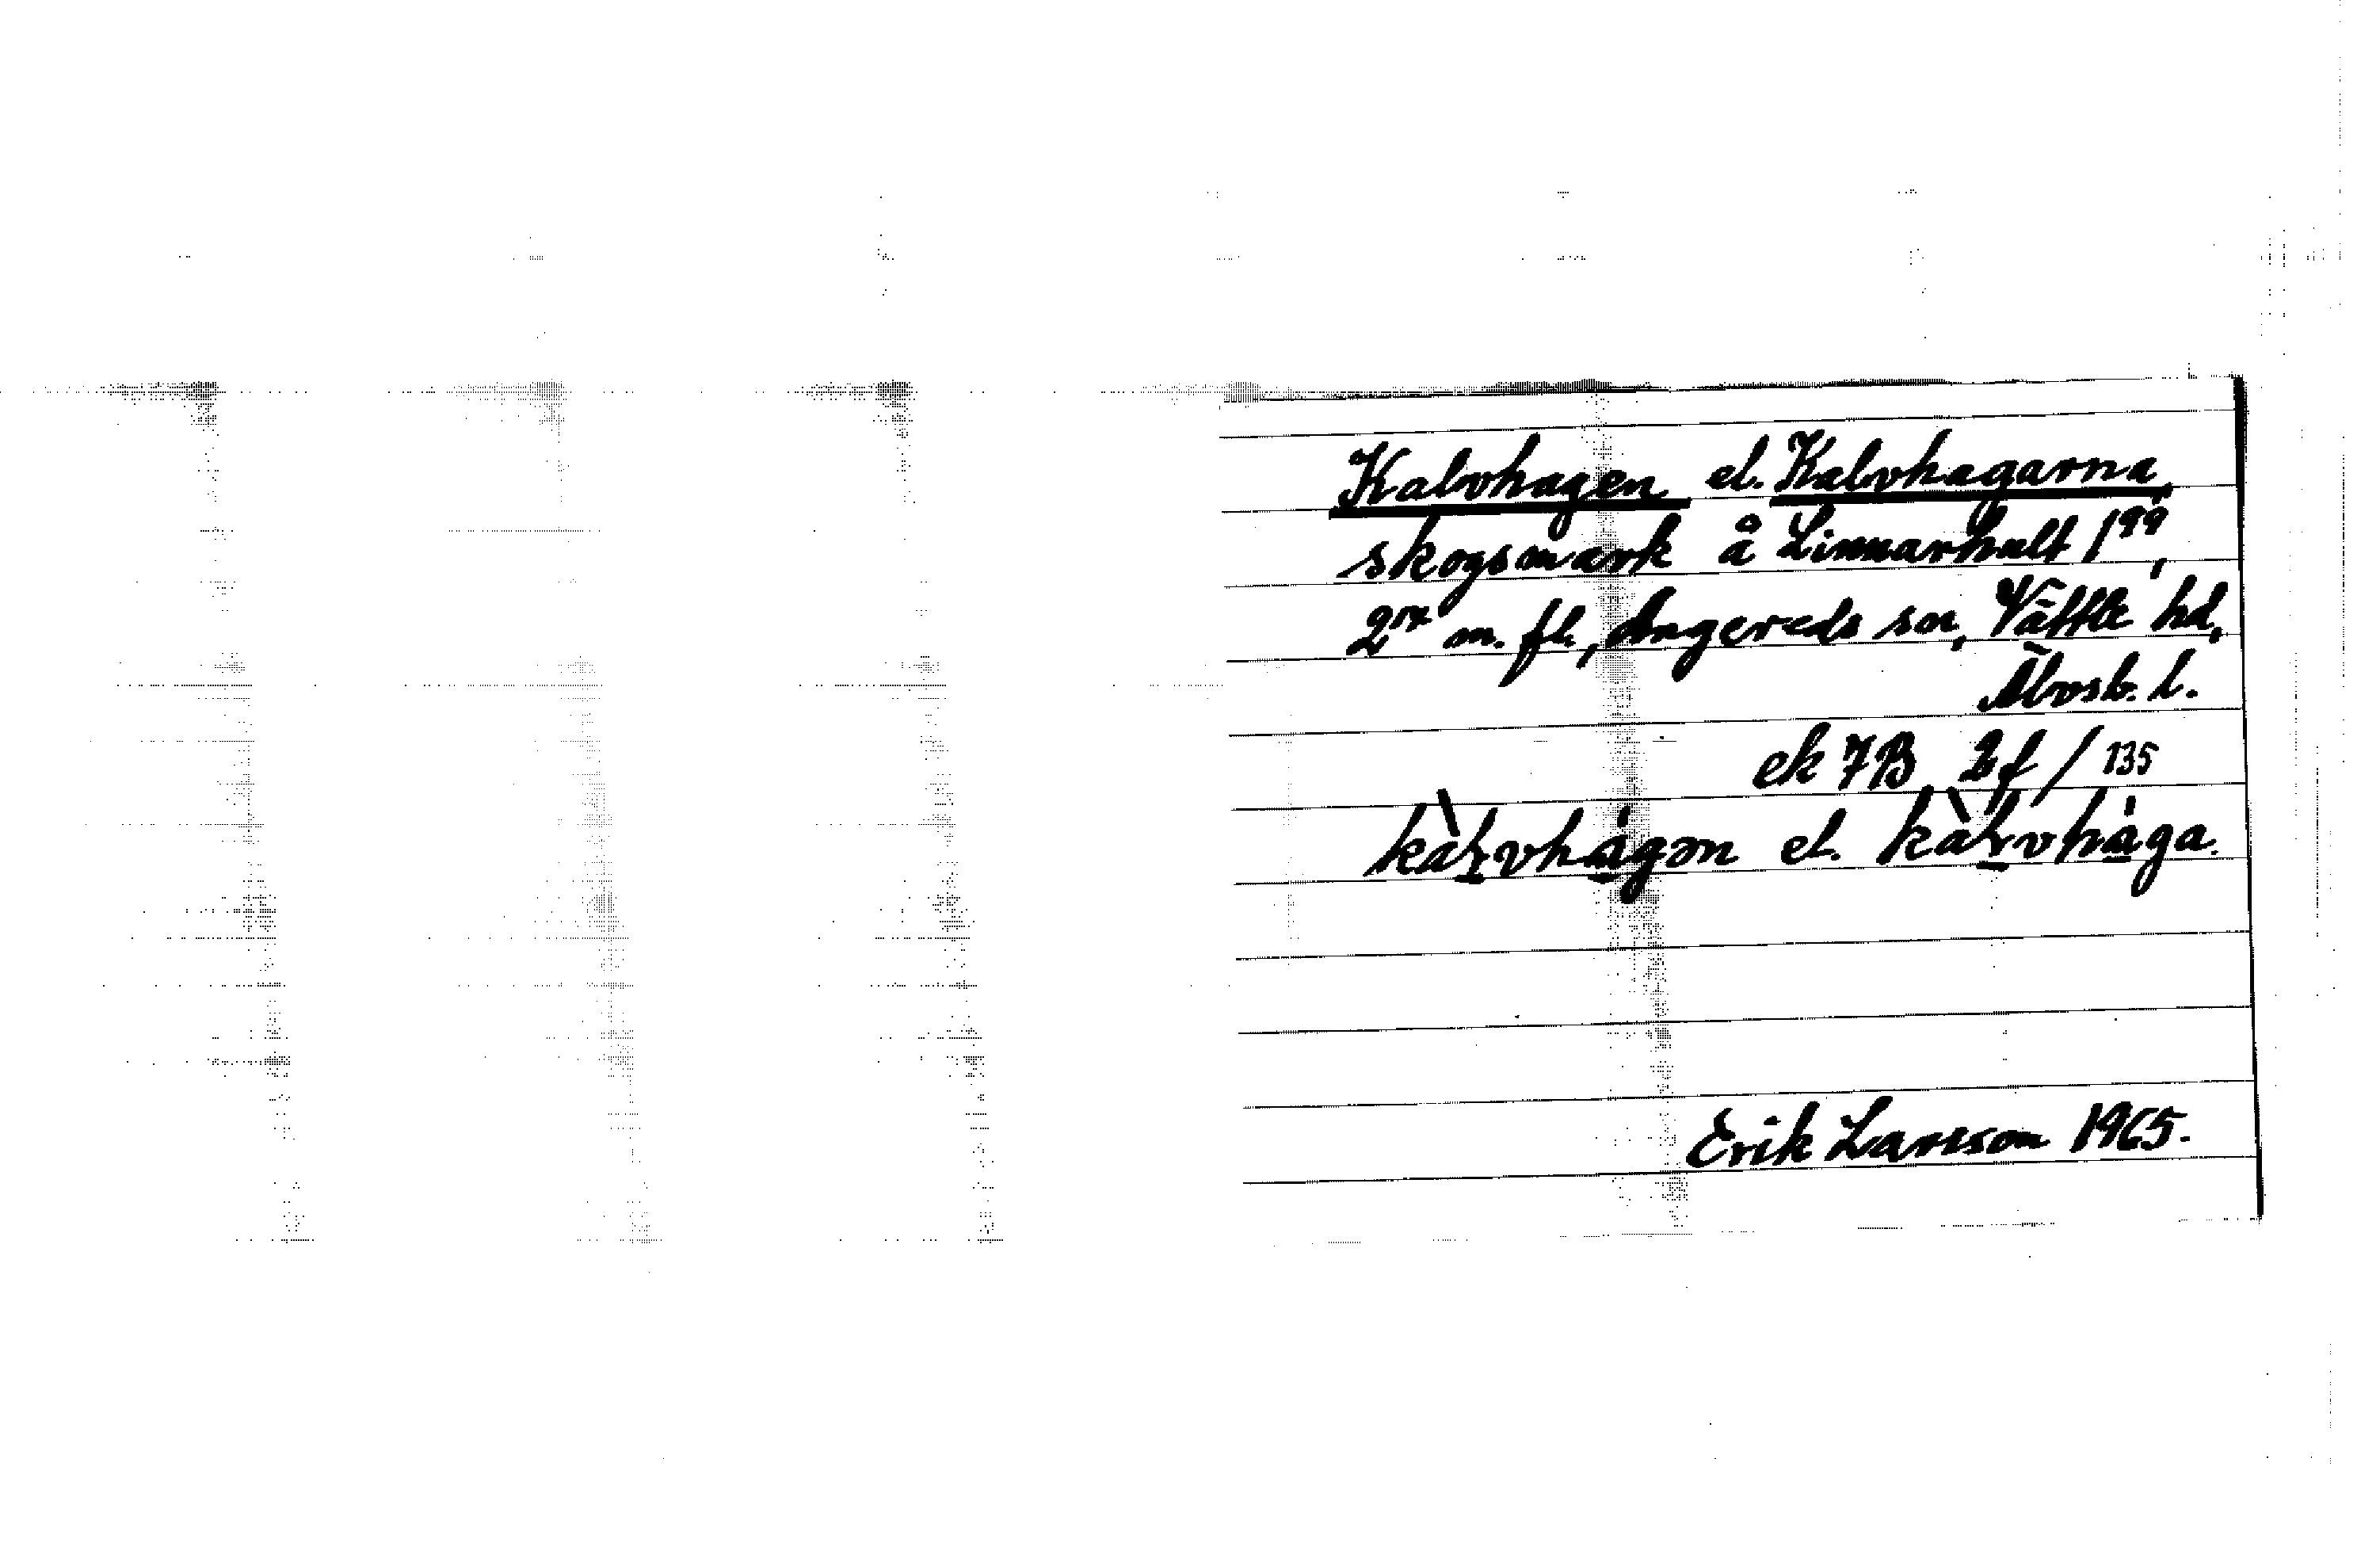 Kalvhagen el. Kalvhagarna,
skogsmark å Linnarhult 1⁹⁹,
2¹⁷ m. fl., Angereds sn, Vättle hd,
Älvsb. l.
ek 7B 2f / 135
kàlvhágən el. kàlvhága.
Erik Larsson 1965.